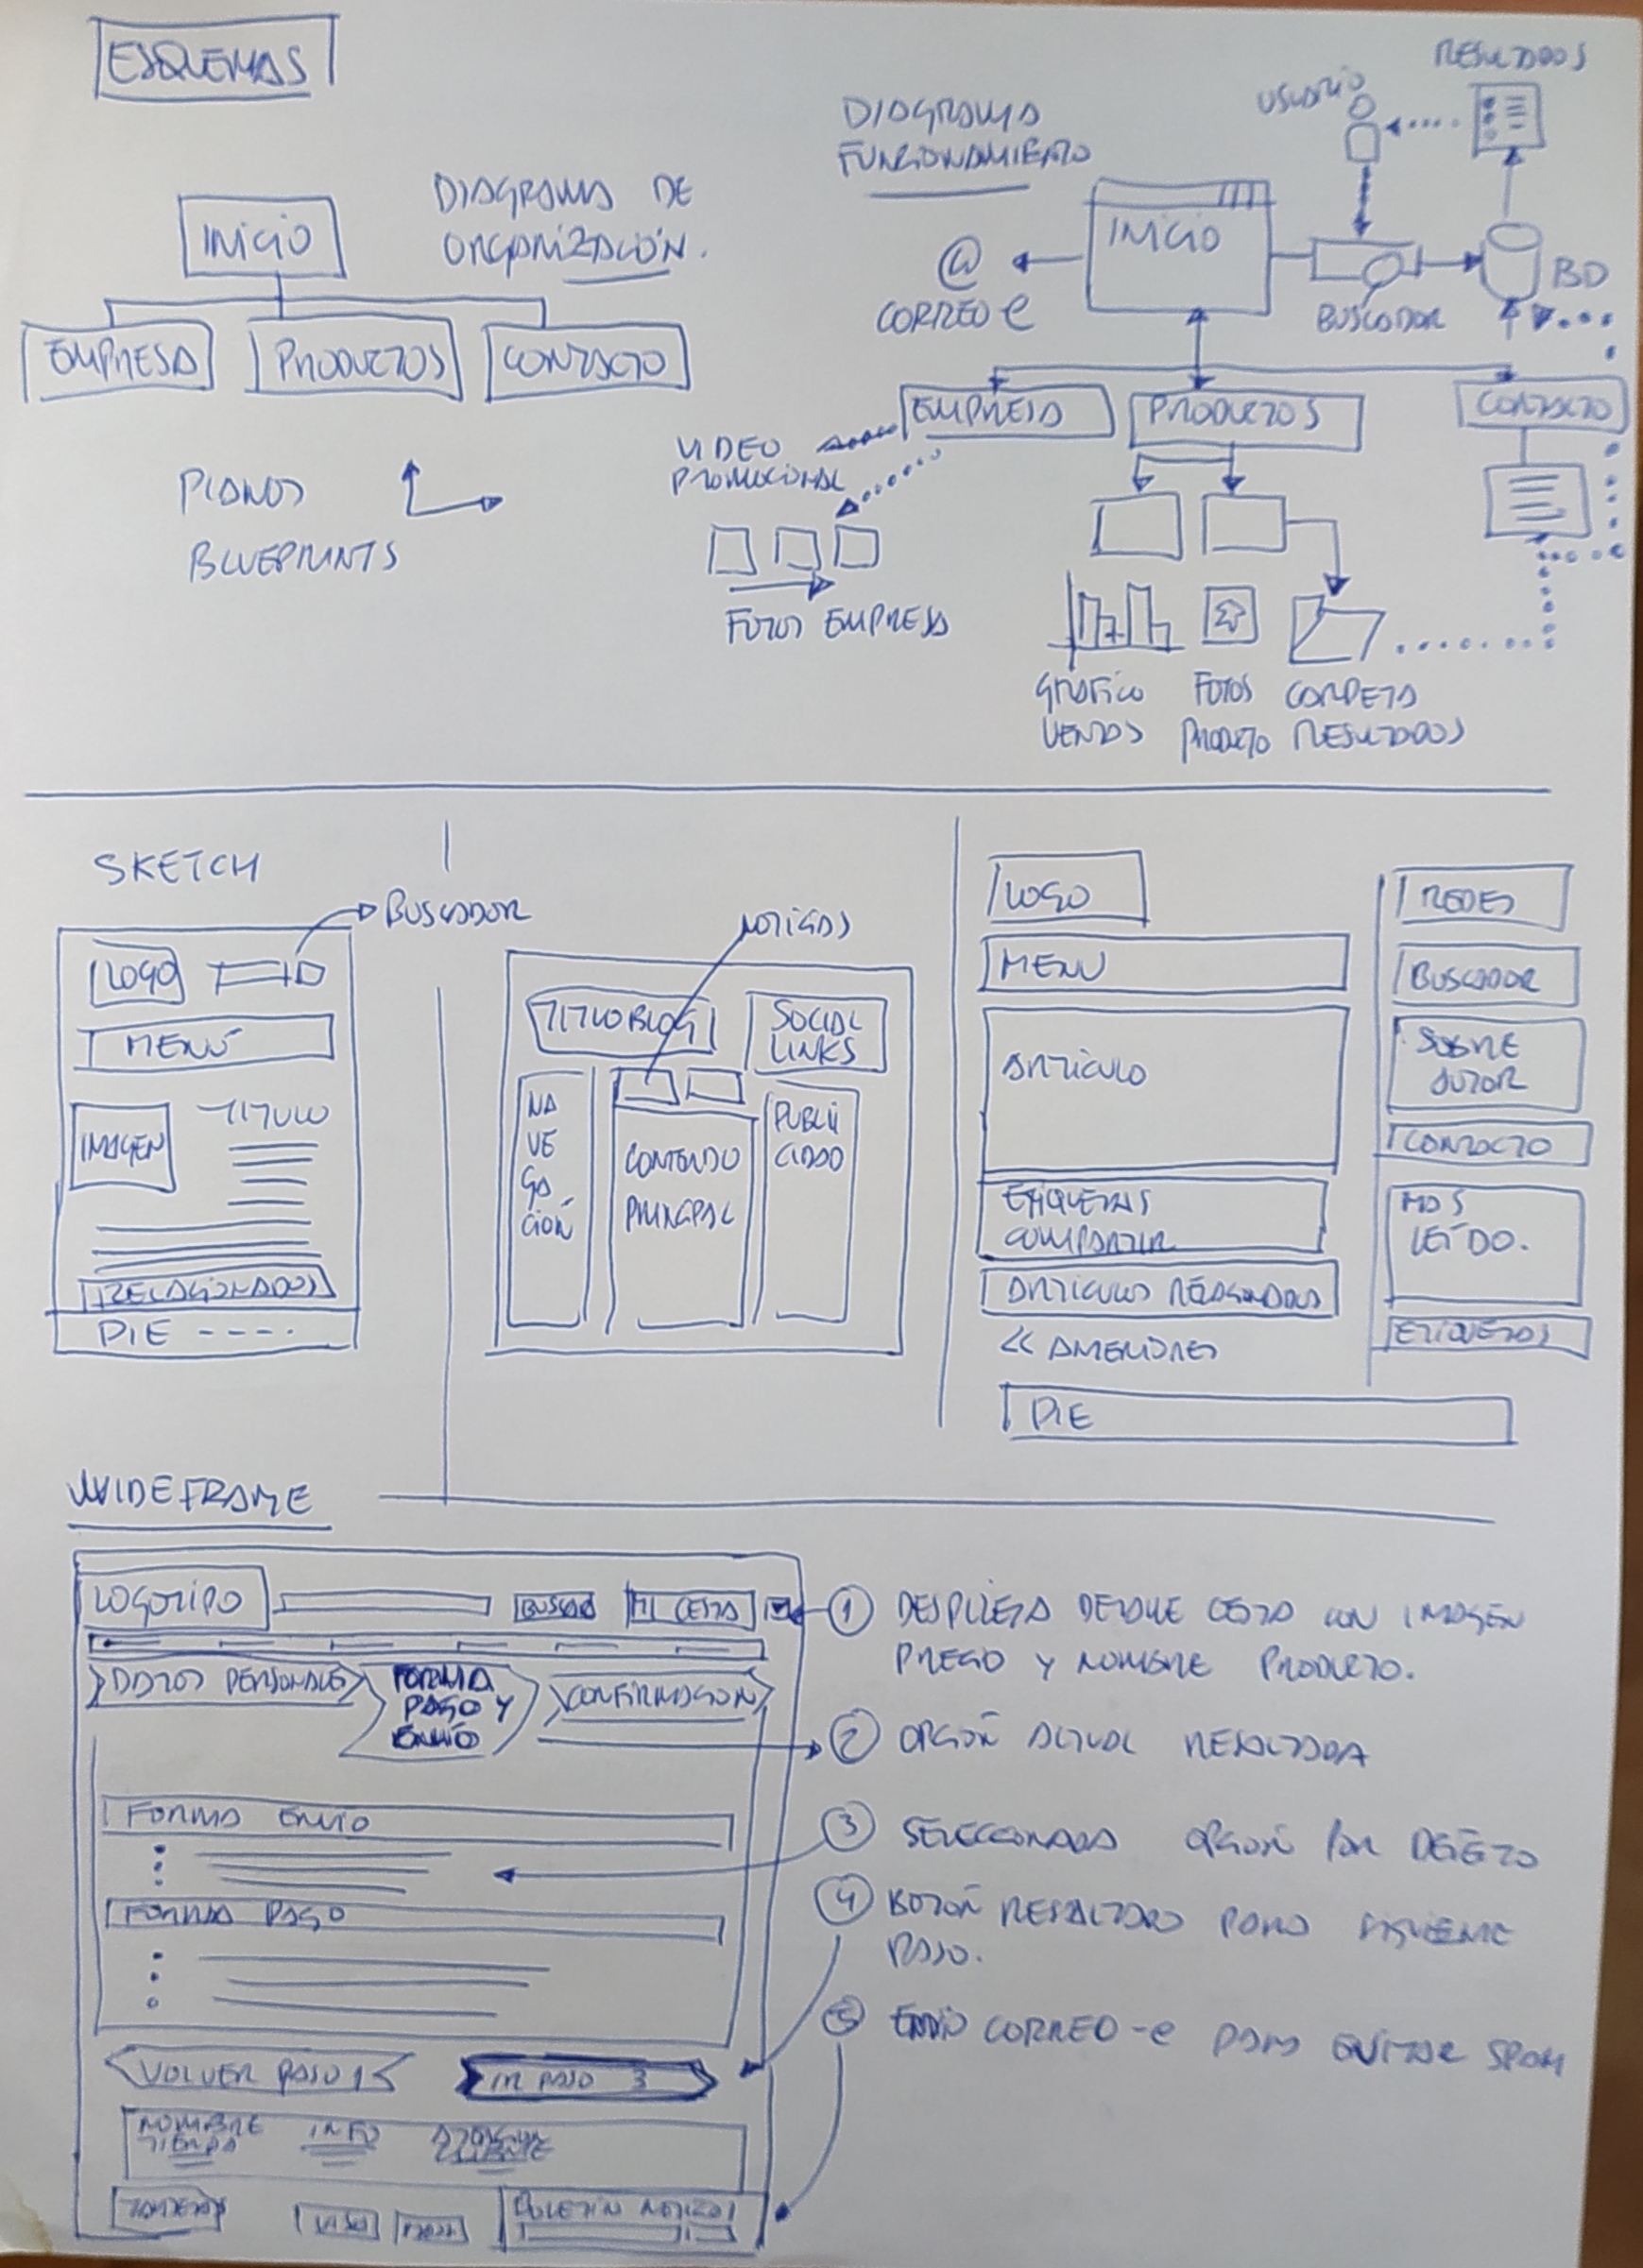 ESQUEMAS
DIAGRAMA DE
ORGANIZACIÓN.
INICIO
EMPRESA
PRODUCTOS
CONTACTO
PLANOS
BLUEPRINTS
DIAGRAMA
FUNCIONAMIENTO
USUARIO
RESULTADOS
INICIO
@
CORREO e
BUSCADOR
BD
EMPRESA
PRODUCTOS
CONTACTO
VIDEO
PROMOCIONAL
FOTOS EMPRESA
GRÁFICO
VENTAS
FOTOS
PRODUCTO
CARPETA
RESULTADOS
SKETCH
BUSCADOR
LOGO
MENÚ
IMAGEN
TITULO
RELACIONADOS
PIE ----.
NOTICIAS
TITULO BLOG
SOCIAL
LINKS
NA
VE
GA
CIÓN
CONTENIDO
PRINCIPAL
PUBLI
CIDAD
LOGO
MENU
ARTICULO
ETIQUETAS
COMPARTIR
ARTICULOS RELACIONADOS
<< ANTERIORES
PIE
REDES
BUSCADOR
SOBRE
AUTOR
CONTACTO
MAS
LEÍDO.
ETIQUETAS
WIDEFRAME
LOGOTIPO
BUSCAR
MI CESTA
DATOS PERSONALES
FORMA
PAGO Y
ENVÍO
CONFIRMACION
FORMA ENVIO
FORMA PAGO
VOLVER PASO 1
IR PASO 3
NOMBRE
TIENDA
INFO
ATENCIÓN
CLIENTE
VISA
BOLETIN NOTICIAS
1 DESPLIEGA DETALLE CESTA CON IMAGEN
PRECIO Y NOMBRE PRODUCTO.
2 OPCIÓN ACTUAL RESALTADA
3 SELECCIONADA OPCIÓN POR DEFECTO
4 BOTÓN RESALTADO PARA SIGUIENTE
PASO.
5 ENVÍO CORREO-e PARA EVITAR SPAM